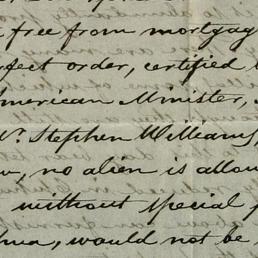 free from mortgag
rfect order, certified
merican Minister,
Stephen Williams,
w, no alien is allow
without special
would not be